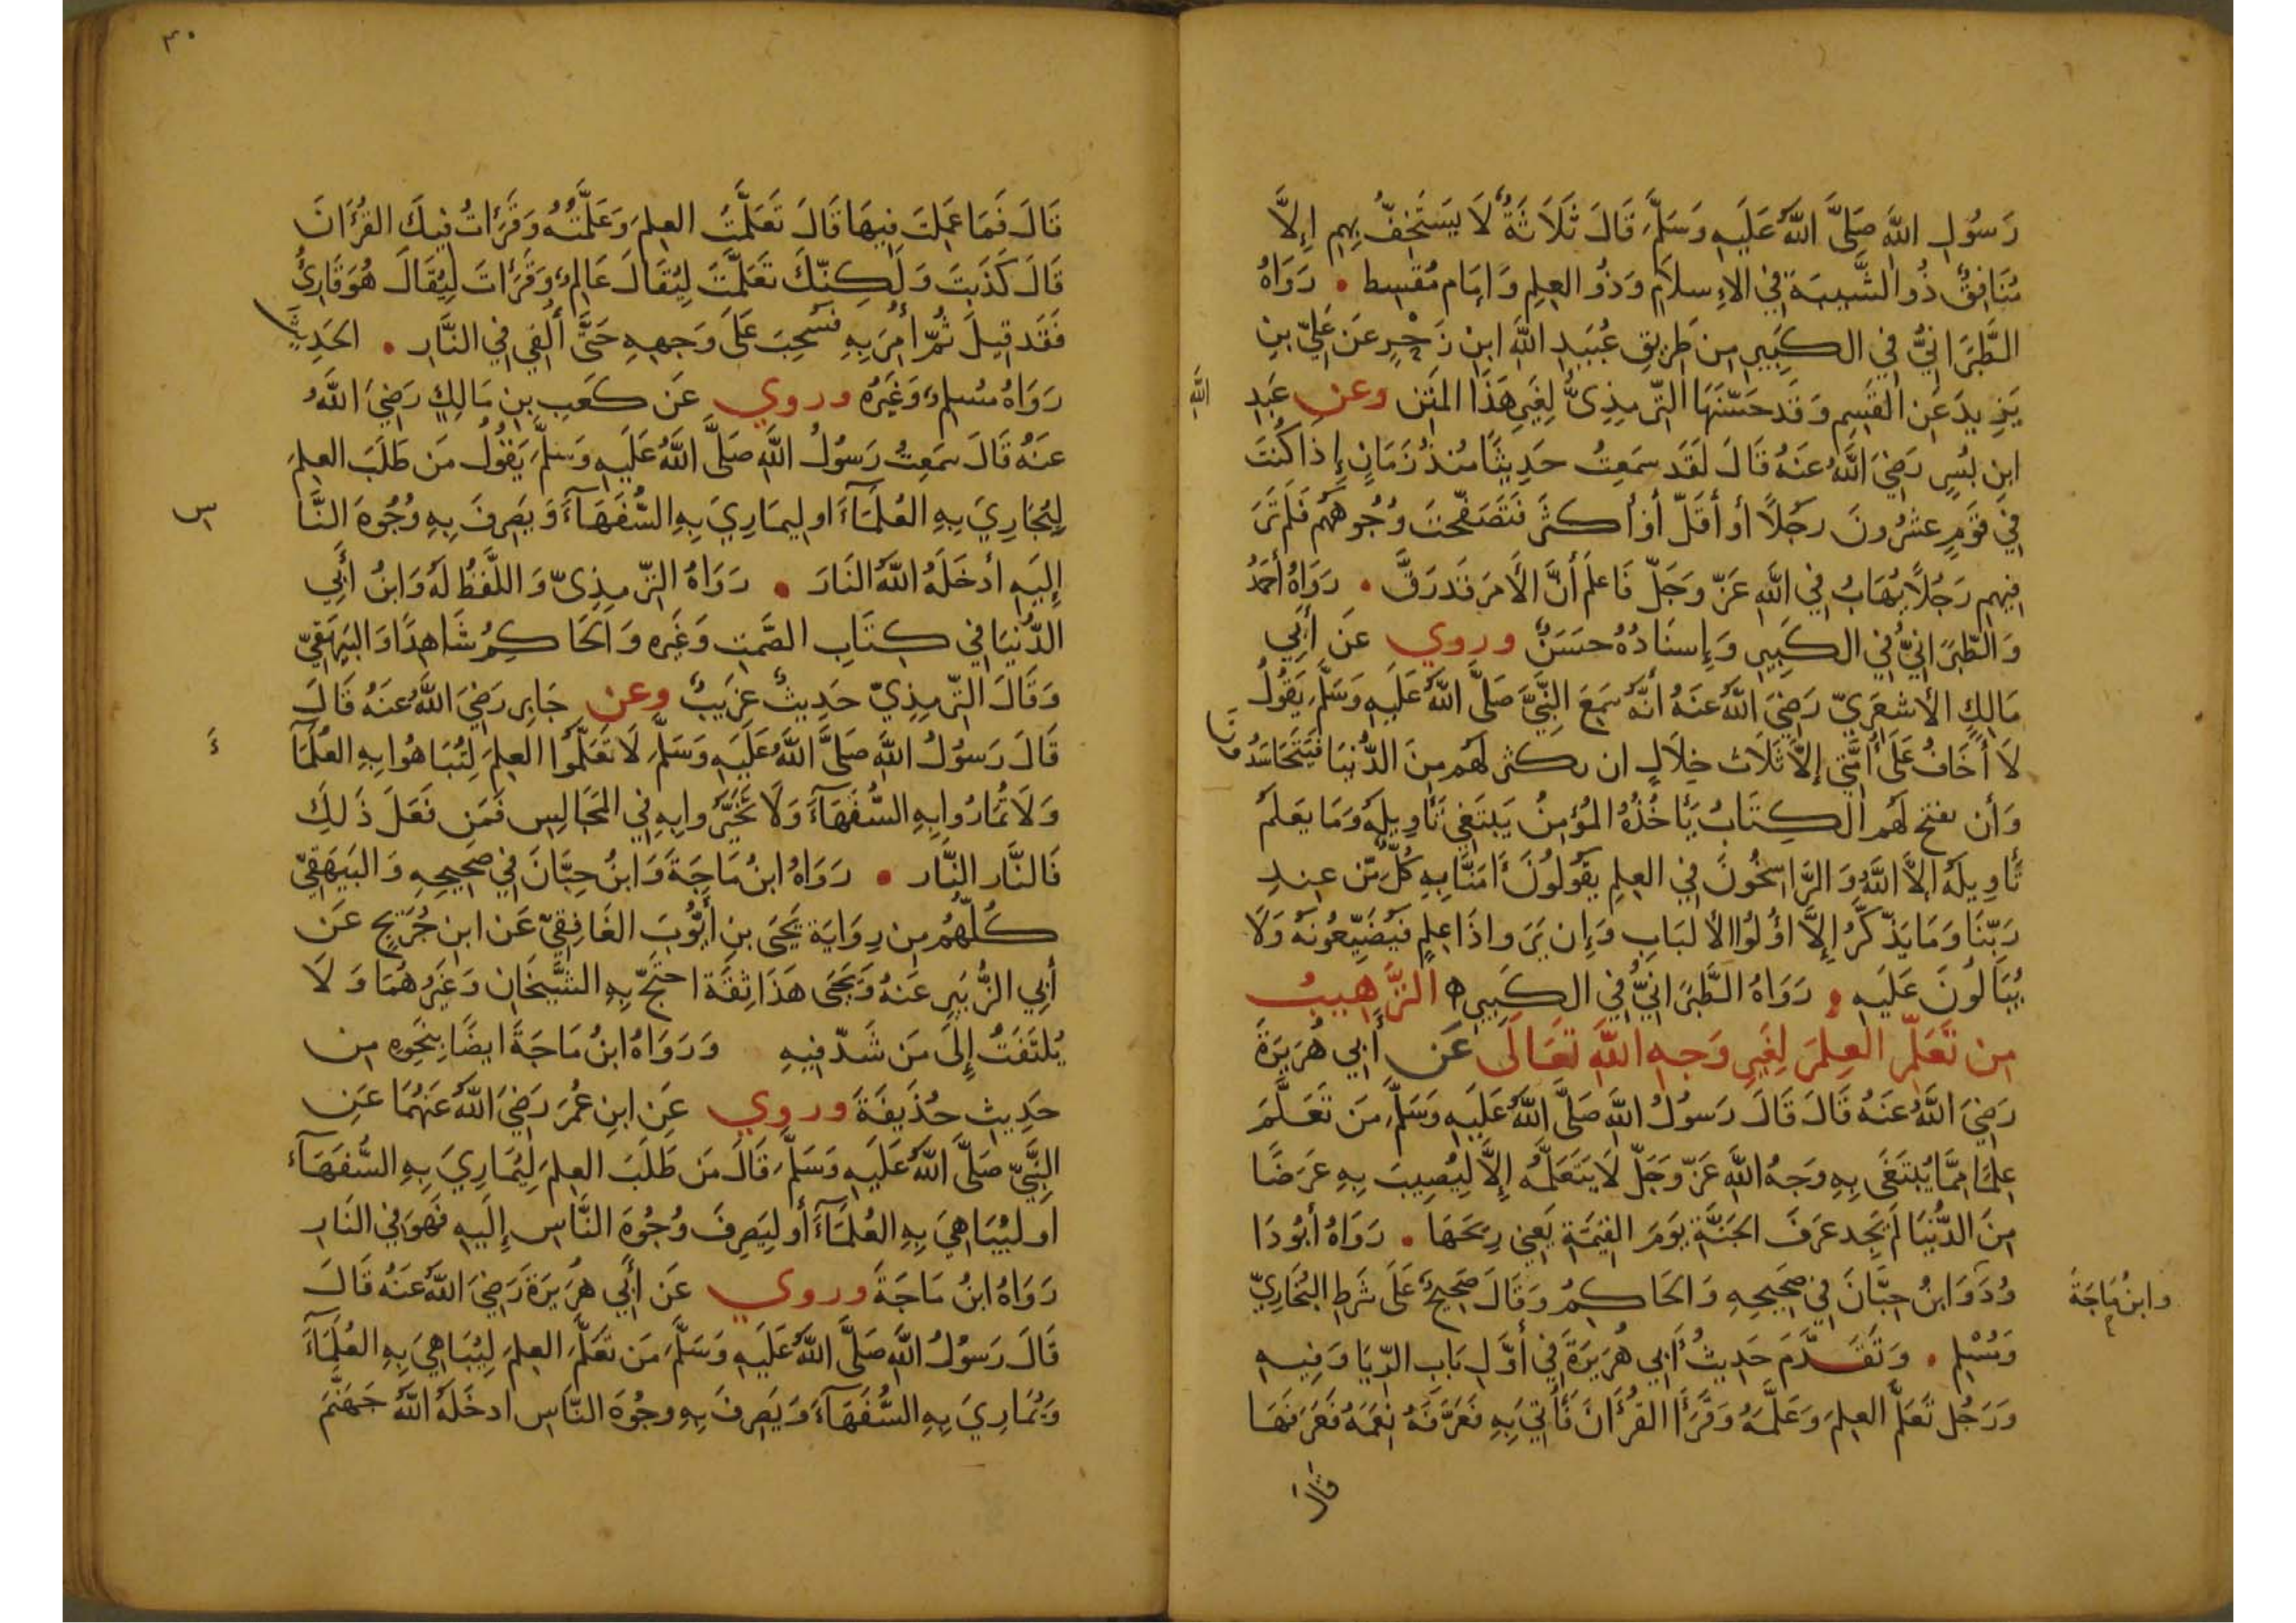 رَسُولِ اللَّهِ صَلَّى اللَّهُ عَلَيهِ وَسَلَّمَ قَالَ ثَلَاثَةٌ لَا يَستَخِفُّ بِهِم إِلاَّ
مُنَافِقٌ ذُو الشَّيبَةِ فِي الإِسلَامِ وَذُو العِلمِ وَإِمَام مُقسِط . رَوَاهُ
الطَّبَرَانِيُّ فِي الكَبِيرِ مِن طَرِيقِ عُبَيدِ اللَّهِ ابنِ زَحْرٍ عَن عَلِيّ بنِ
يَزِيدَ عَن القَسِمِ وَقَد حَسَّنَهَا التِّرمِذِىُّ لِغَيرِ هَذَا المَتنِ وعن عَبدِ
اللَّهِ
ابنِ بُسرٍ رَضِيَ اللَّهُ عَنهُ قَالَ لَقَد سَمِعتُ حَدِيثًا مُنذُ زَمَانٍ إِذَا كُنتَ
فِي قَومٍ عشرُونَ رَجُلاً أو أَقَلّ أَو أَكثَر فَتَصَفَّحتَ وُجُوهَهُم فَلَم تَرَ
فِيهِم رَجُلاً يُهَابُ فِي اللَّهِ عَزّ وَجَلّ فَاعلَم أَنَّ الأَمرَ قَد رَقَّ . رَوَاهُ أَحمَدُ
وَالطَّبَرَانِيُّ فِي الكَبِيرِ وَإِسنَادُهُ حَسَنٌ وروي عَن أَبِي
مَالِكٍ الأَشعَرِيّ رَضِيَ اللَّهُ عَنهُ أَنَّهُ سَمِعَ النَّبِيَّ صَلَّى اللَّهُ عَلَيهِ وَسَلَّمَ يَقُولُ
لَا أَخَافُ عَلَى أُمَّتِي إِلاَّ ثَلَاث خِلَالٍ ان يكثر لَهُم مِنَ الدُّنيَا فَيَتَحَاسَدُون
وَأن يفتح لَهُم الكِتَابُ يَأخُذُهُ المُؤمِنُ يَبتَغِي تَأوِيلَهُ وَمَا يَعلَمُ
تَأوِيلَهُ إِلاَّ اللَّهُ وَالرَّاسِخُونَ فِي العِلمِ يَقُولُونَ أَمَنَّا بِهِ كُلّ مّن عِندِ
رَبِّنَا وَمَا يَذّكَّرُ إِلاَّ أُولُوا الألبَابِ وَإِن يَرَوا ذَا عِلمٍ فَيُضَيِّعُونَهُ وَلَا
يُبَالُونَ عَلَيهِ . رَوَاهُ الطَّبَرَانِيُّ فِي الكَبِيرِ ه الترَّهِيبُ
مِن تَعَلُّمِ العِلمَ لِغَيرِ وَجهِ اللَّهِ تَعَالَى عَن أَبِي هُرَيرَةَ
رَضِيَ اللَّهُ عَنهُ قَالَ قَالَ رَسُولُ اللَّهِ صَلَّى اللَّهُ عَلَيهِ وَسَلَّمَ مَن تَعَلَّمَ
عِلمًا مِمَّا يُبتَغَى بِهِ وَجهُ اللَّهِ عَزّ وَجَلّ لَا يَتَعَلَّمُهُ إِلاَّ لِيُصِيبَ بِهِ عَرَضًا
مِنَ الدُّنيَا لَم يَجِد عَرفَ الجَنَّةِ يَومَ القِيمَةِ يَعنِي رِيحَهَا . رَوَاهُ أَبُو دَا
وُدَ وَابنُ حِبَّانَ فِي صَحِيحِهِ وَالحَاكِمُ وَقَالَ صَحِيحٌ عَلَى شَرطِ البُخَارِيّ
وابنُ مَاجَةَ
وَمُسْلِمٍ . وَتَقَدَّمَ حَدِيثُ أَبِي هُرَيرَةَ فِي أَوَّلِ بَابِ الرِّيَا وَفِيهِ
وَرَجُل تَعَلَّمَ العِلمَ وَعَلَّمَهُ وَقَرَأَ القُرأَنَ فَأُتِيَ بِهِ فَعَرَّفَهُ نِعَمَهُ فَعَرَفَهَا
قال
٣٠
قَالَ فَمَا عَمِلتَ فِيهَا قَالَ تَعَلَّمتُ العِلمَ وَعَلَّمتُهُ وَقَرَأتُ فِيكَ القُرأَنَ
قَالَ كَذَبتَ وَلَكِنّكَ تَعَلَّمتَ لِيُقَالَ عَالِمٌ وَقَرَأتَ لِيُقَالَ هُوَ قَارِئٌ
فَقَد قِيلَ ثُمّ أُمِرَ بِهِ فَسُحِبَ عَلَى وَجهِهِ حَتَّى أُلقِي فِي النَّارِ . الحَدِيثَ
رَوَاهُ مُسلِمٌ وَغَيرُهُ وروي عَن كَعبِ بنِ مَالِكٍ رَضِيَ اللَّهُ
عَنهُ قَالَ سَمِعتُ رَسُولُ اللَّهِ صَلَّى اللَّهُ عَلَيهِ وَسَلَّمَ يَقُولُ مَن طَلَبَ العِلمَ
لِيُجَارِيَ بِهِ العُلَمَاءَ او ليمَارِيَ بِهِ السُّفَهَآءَ وَيَصرِفَ بِهِ وُجُوهَ النَّا
س
إِلَيهِ أَدخَلَهُ اللَّهُ النَارَ . رَوَاهُ التّرمِذِىّ وَاللَّفظُ لَهُ وَابنُ أَبِي
الدُّنيَا فِي كِتَابِ الصَّمتِ وَغَيرِه وَالحَاكِمُ شَاهِدًا وَالبَيهَقِيّ
وَقَالَ التِّرمِذِيّ حَدِيثٌ غَرِيبٌ وعن جَابِر رَضِيَ اللَّهُ عَنهُ قَالَ
قَالَ رَسُولُ اللَّهِ صَلَّى اللَّهُ عَلَيهِ وَسَلَّمَ لَا تَعَلَّمُوا العِلمَ لِتُبَاهُوا بِهِ العُلَمَا
ءَ
وَلَا تُمَارُوا بِهِ السُّفَهَآءَ وَلَا تَخَيَّرُوا بِهِ فِي المَجَالِسِ فَمَن فَعَلَ ذَلِكَ
فَالنَّار النَّار . رَوَاهُ ابنُ مَاجَةَ وَابنُ حِبَّانَ فِي صَحِيحِهِ وَالبَيهَقِيّ
كُلُّهُم مِن رِوَايَة يَحيَى بنِ أَيُّوبَ الغَافِقِيّ عَن ابنِ جُرَيجٍ عَن
أَبِي الزُّبَيرِ عَنهُ وَيَحيَى هَذَا ثِقَة احتَجّ بِهِ الشَّيخَانِ وَغَيرُهُمَا وَلَا
يُلتَفَتُ إِلَى مَن شَذّ فِيهِ وَرَوَاهُ ابنُ مَاجَةَ ايضًا بِنَحوِهِ مِن
حَدِيثِ حُذَيفَةَ وروي عَنِ ابنِ عُمَرَ رَضِيَ اللَّهُ عَنهُمَا عَنِ
النَّبِيّ صَلَّى اللَّهُ عَلَيهِ وَسَلَّمَ قَالَ مَن طَلَبَ العِلمَ لِيُمَارِيَ بِهِ السُّفَهَآءَ
او ليُبَاهِيَ بِهِ العُلَمَآءَ أَو لِيَصرِفَ وُجُوهَ النَّاسِ إِلَيهِ فَهوَ فِي النَارِ
رَوَاهُ ابنُ مَاجَةَ وروي عَن أَبِي هُرَيرَةَ رَضِيَ اللَّهُ عَنهُ قَالَ
قَالَ رَسُولُ اللَّهِ صَلَّى اللَّهُ عَلَيهِ وَسَلَّمَ مَن تَعَلَّمَ العِلمَ لِيُبَاهِيَ بِهِ العُلَمَآءَ
وَيُمَارِيَ بِهِ السُّفَهَآءَ وَيَصرِفَ بِهِ وجُوهَ النَّاسِ ادخَلَهُ اللَّهُ جَهَنَّمَ